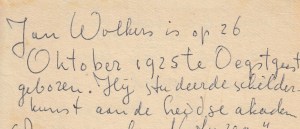 Jan Wolkers is op 26
Oktober 1925 te Oegstgeest
geboren. Hij studeerde schilder-
kunst aan de Leidse akadem